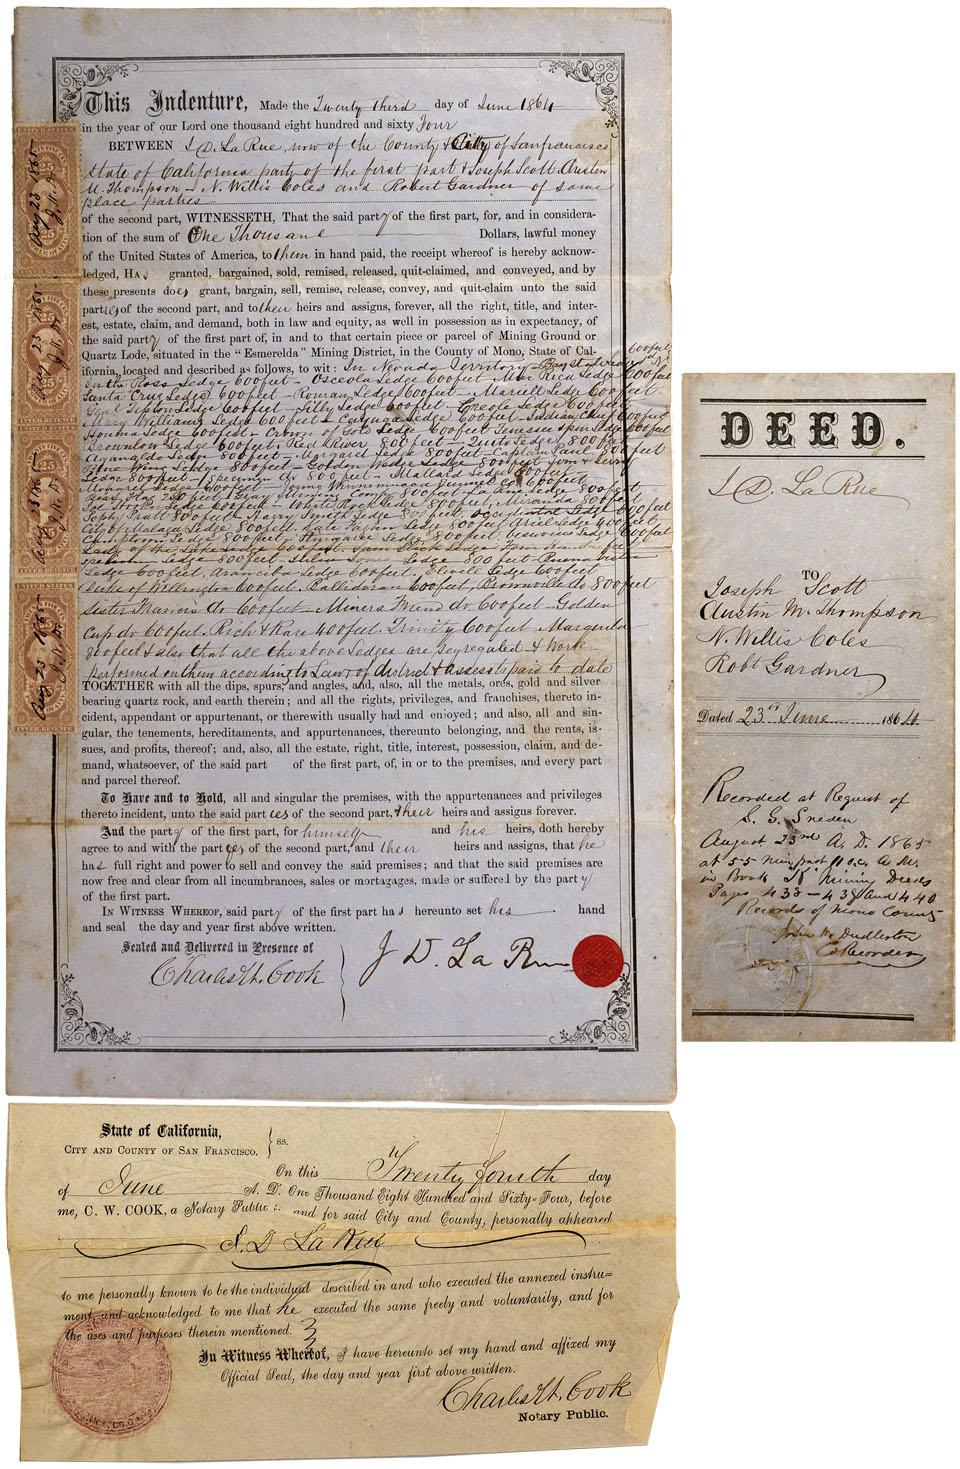 This Indenture, Made the Twenty third day of June 1864
in the year of our Lord one thousand eight hundred and sixty Four
BETWEEN D. La Rue, now of the County & City of Sanfrancisco
State of California party of the first part & Joseph Scott Austin
M. Thompson – N. Willis Coles and Robert Gardner of same
place parties
of the second part, WITNESSETH, That the said party of the first part, for, and in considera-
tion of the sum of One Thousand Dollars, lawful money
of the United States of America, to them in hand paid, the receipt whereof is hereby acknow-
ledged, HAs granted, bargained, sold, remised, released, quit-claimed, and conveyed, and by
these presents does grant, bargain, sell, remise, release, convey, and quit-claim unto the said
parties of the second part, and to their heirs and assigns, forever, all the right, title, and inter-
est, estate, claim, and demand, both in law and equity, as well in possession as in expectancy, of
the said party of the first part of, in and to that certain piece or parcel of Mining Ground or
Quartz Lode, situated in the "Esmerelda" Mining District, in the County of Mono, State of Cal-
ifornia, located and described as follows, to wit: In Nevada Territory –
Ross Ledge 600 feet – Osceola Ledge 600 feet Rica Ledge 600 feet
Santa Cruz Ledge 600 feet – Roman Ledge 600 feet – Ledge 600 feet
Tipton Ledge 600 feet – Ledge 600 feet – Creole Ledge 600 feet
Mary Williams Ledge 600 feet – Ledge 600 feet – Indian Chief 600 feet
Ledge 600 feet – Crown of Gold Ledge 600 feet Ledge 600 feet
Brownlow Ledge 600 feet, Red River 800 feet – Quito Ledge 800 feet
Ledge 800 feet – Margaret Ledge 800 feet – Captain Paul 800 feet
Blue Wing Ledge 800 feet – Golden Wedge Ledge 800 feet
Ledge 800 feet – Specimen 800 feet – Mallard Ledge 800 feet
Tunnel Co 600 feet
200 feet Gray Mining Comp 800 feet Ledge 800 feet
Ledge 600 feet – White Rock Ledge 800 feet, Miranda 800 feet
Pratt 800 feet Harry Smith Ledge 800 feet Occidental Ledge 600 feet
City of Malaga Ledge 800 feet, Kate Ledge 800 feet Ariel Ledge 400 feet
Ledge 800 feet – Ledge 800 feet, Vesuvius Ledge 600 feet
Lady of the Lake Ledge 600 feet
Ledge 800 feet – 800 feet
Ledge 600 feet, Ledge 600 feet, Ledge 600 feet
Duke of Wellington 600 feet, 600 feet, Brownville do 800 feet
Sister do 600 feet – Miners Friend do 600 feet – Golden
Cup do 600 feet, Rich & Rare 400 feet, Trinity 600 feet
800 feet & also that all the above Ledges are segregated & Work
performed on them according to Laws of district & assests paid to date
TOGETHER with all the dips, spurs, and angles, and, also, all the metals, ores, gold and silver
bearing quartz rock, and earth therein; and all the rights, privileges, and franchises, thereto in-
cident, appendant or appurtenant, or therewith usually had and enjoyed; and also, all and sin-
gular, the tenements, hereditaments, and appurtenances, thereunto belonging, and the rents, is-
sues, and profits, thereof; and, also, all the estate, right, title, interest, possession, claim, and de-
mand, whatsoever, of the said part of the first part, of, in or to the premises, and every part
and parcel thereof.
To Have and to Hold, all and singular the premises, with the appurtenances and privileges
thereto incident, unto the said parties of the second part, their heirs and assigns forever.
And the party of the first part, for himself and his heirs, doth hereby
agree to and with the parties of the second part, and their heirs and assigns, that he
has full right and power to sell and convey the said premises; and that the said premises are
now free and clear from all incumbrances, sales or mortagages, made or suffered by the party
of the first part.
IN WITNESS WHEREOF, said party of the first part has hereunto set his hand
and seal the day and year first above written.
Sealed and Delivered in Presence of
Charles W. Cook
J D. La Rue
Aug 23 1865
J. N. D.
25
Aug 23 1865
J. N. D.
25
Aug 23 1865
J. N. D.
25
Aug 23 1865
J. N. D.
DEED.
D. La Rue
TO
Joseph Scott
Austin M. Thompson
N. Willis Coles
Robt Gardner
Dated 23rd June 1864
Recorded at Request of
S. G. Sneden
August 23rd A. D. 1865
at 55 min past 10 o.c. A. M.
in Book Mining Deeds
Pages 433 – 439 and 440
Records of Mono County
John N. Dudleston
Recorder
State of California,
CITY AND COUNTY OF SAN FRANCISCO. } ss.
On this Twenty fourth day
of June A. D. One Thousand Eight Hundred and Sixty-Four, before
me, C. W. COOK, a Notary Public and for said City and County, personally appeared
D La Rue
to me personally known to be the individual described in and who executed the annexed instru=
ment, and acknowledged to me that he executed the same freely and voluntarily, and for
the uses and purposes therein mentioned.
In Witness Whereof, I have hereunto set my hand and affixed my
Official Seal, the day and year first above written.
Charles W. Cook
Notary Public.